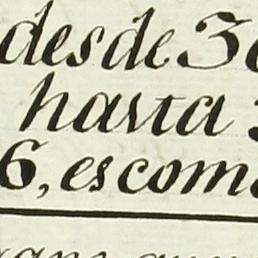 desde 36
hasta
6, es com